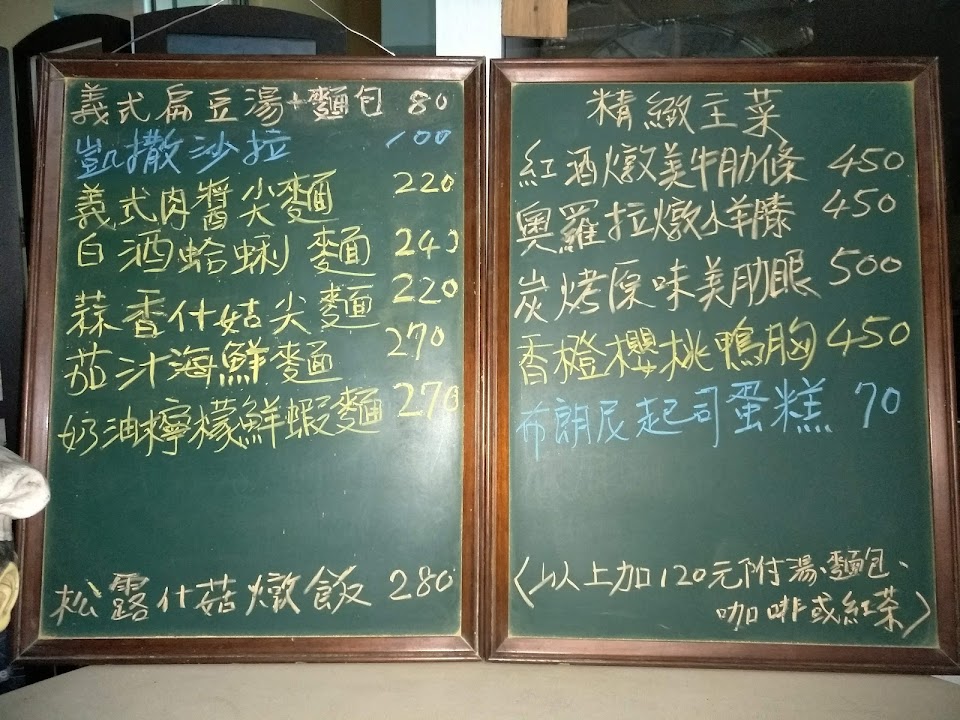 義式扁豆湯+麵包 80
凱撒沙拉 100
義式肉醬尖麵 220
白酒蛤蜊麵 240
蒜香什菇尖麵 220
茄汁海鮮麵 270
奶油檸檬鮮蝦麵 270
松露什菇燉飯 280
精緻主菜
紅酒燉美牛肋條 450
奧羅拉燉小羊膝 450
炭烤原味美肋眼 500
香橙櫻桃鴨胸 450
布朗尼起司蛋糕 70
(以上加120元附湯、麵包、
咖啡或紅茶)